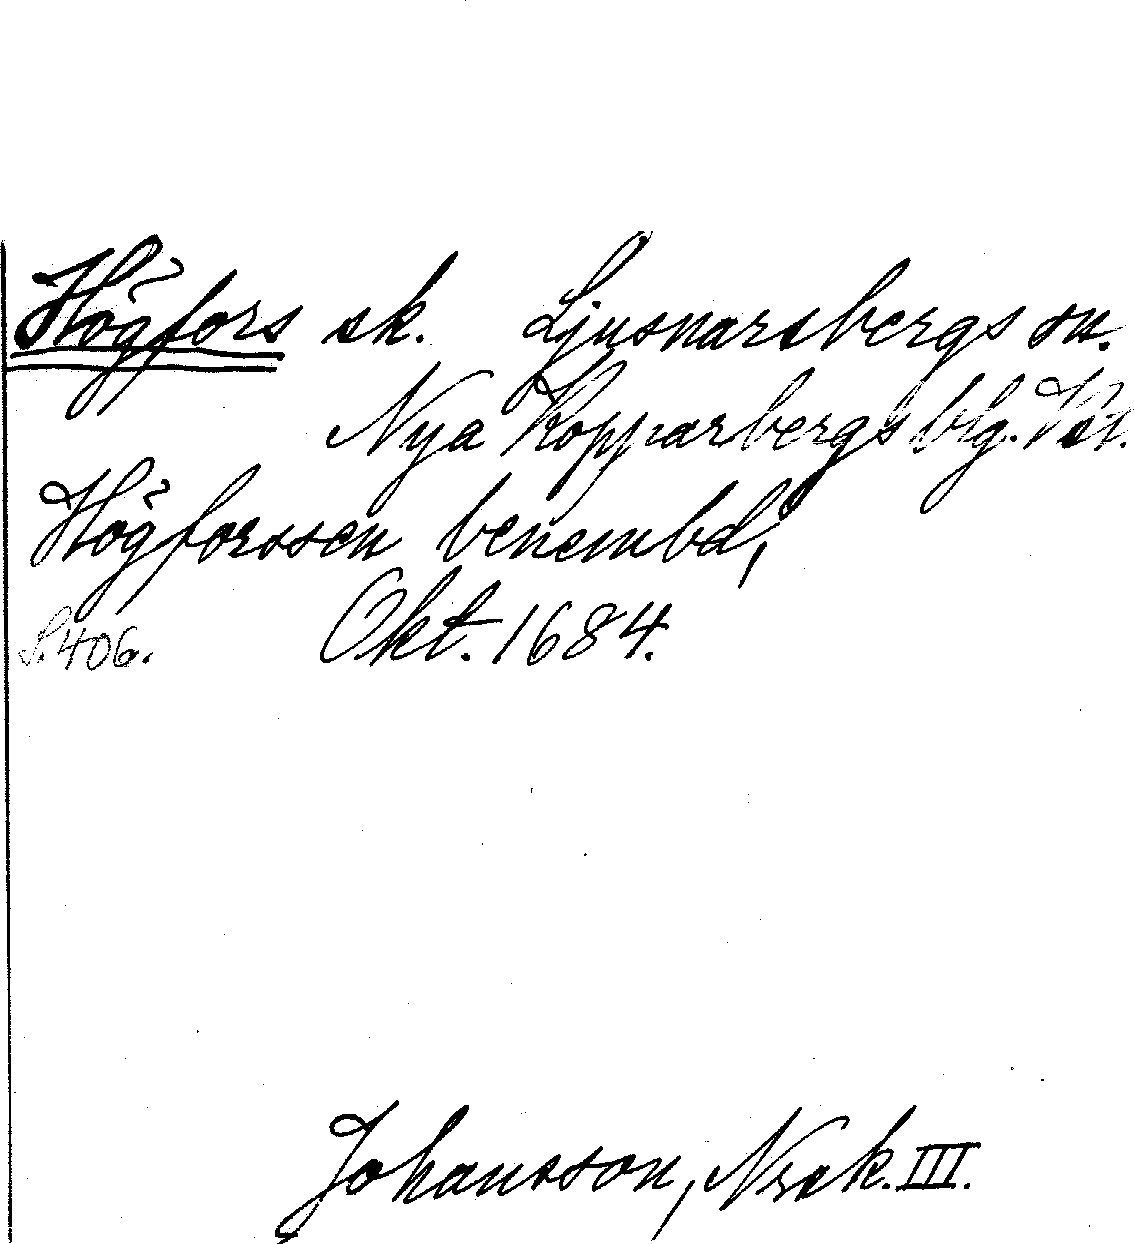 Högfors sk. Ljusnarsbergs sn.
Nya Kopparbergs blg. Vstm.
Högforssen benembd,
S. 406. Okt. 1684.
Johansson, Nrsk. III.